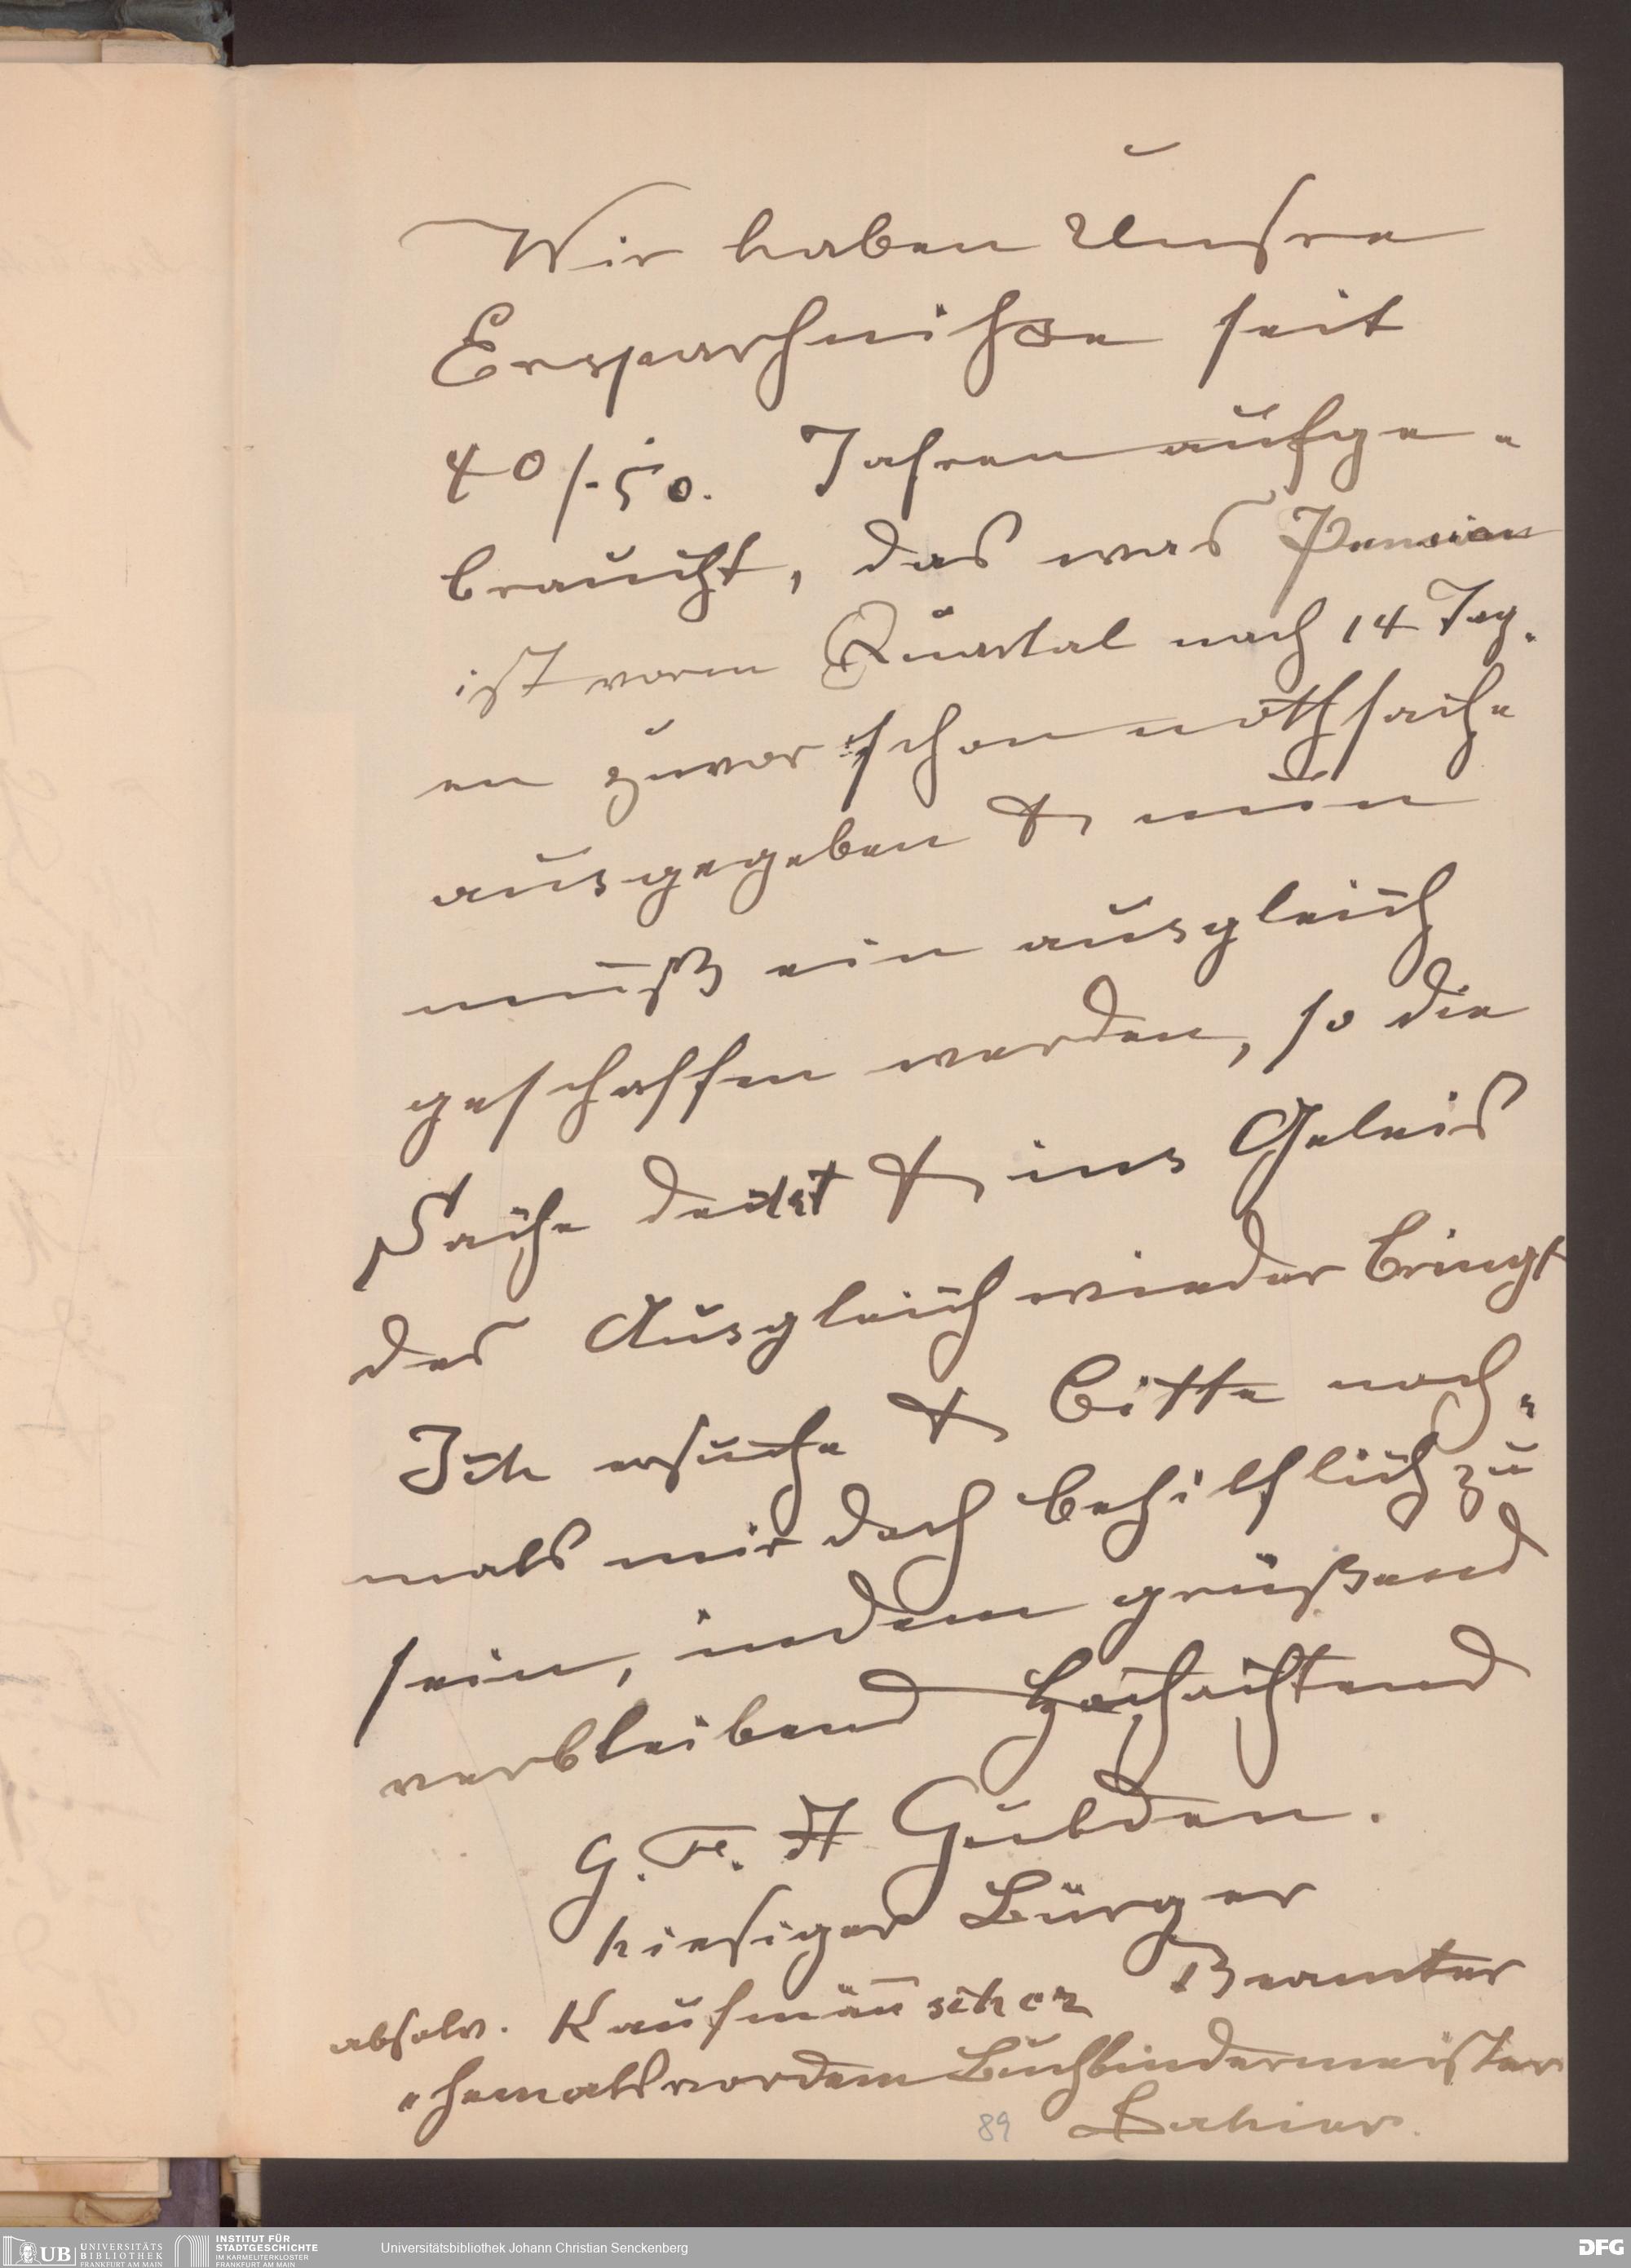 Wir haben Unsre
Ersparhnisse seit
40/-50. Jahren aufge-
braucht, das was Pension
ist vorm Quartal nach 14 Tag.
en zuvor schon nothsache
ausgegeben & nun
muß ein ausgleich
geschaffen werden, so die
Sache deckt & ins Geleis
des Ausgleich wieder bringt
Ich ersuche & bitte noch-
mals mir doch behilflich zu
sein, indem grüßend
verbleibend Hochachtend
G. F. A Gulden.
hiesiger Bürger
absolv. Kaufmännscher Beamter
ehemals vordem Buchbindermeister
89 Dahier.
UB UNIVERSITÄTS BIBLIOTHEK FRANKFURT AM MAIN
INSTITUT FÜR STADTGESCHICHTE IM KARMELITERKLOSTER FRANKFURT AM MAIN
Universitätsbibliothek Johann Christian Senckenberg
DFG